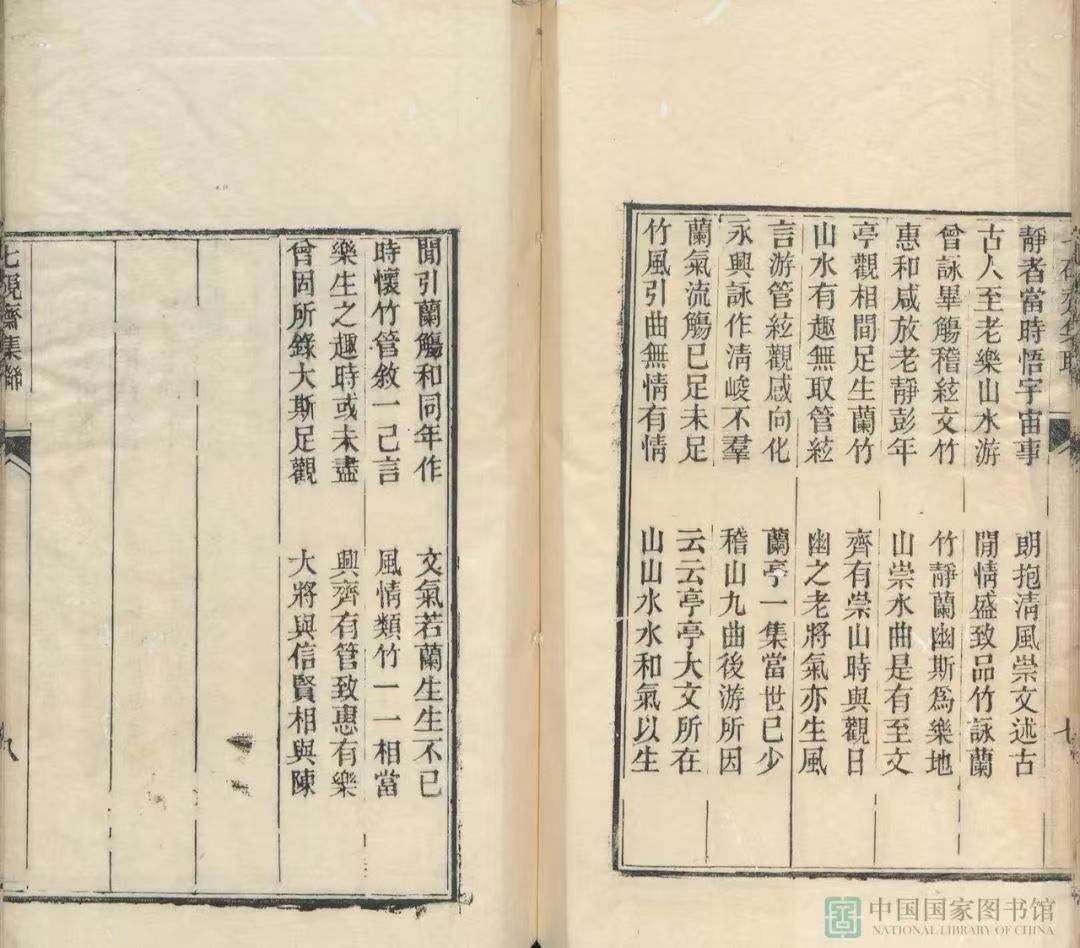 靜者當時悟宇宙事　朗抱清風崇文述古
古人至老樂山水游　閒情盛致品竹詠蘭
曾詠畢觴稽絃文竹　竹靜蘭幽斯爲樂地
惠和咸放老靜彭年　山崇水曲是有至文
亭觀相間足生蘭竹　齊有崇山時與觀日
山水有趣無取管絃　幽之老將氣亦生風
言游管絃觀感向化　蘭亭一集當世已少
永興詠作清峻不羣　稽山九曲後游所因
蘭氣流觴已足未足　云云亭亭大文所在
竹風引曲無情有情　山山水水和氣以生
七
閒引蘭觴和同年作　文氣若蘭生生不已
時懷竹管敘一己言　風情類竹一一相當
樂生之趣時或未盡　興齊有管致惠有樂
曾固所錄大斯足觀　大將與信賢相與陳
七硯齋集聯
八
中国国家图书馆
NATIONAL LIBRARY OF CHINA